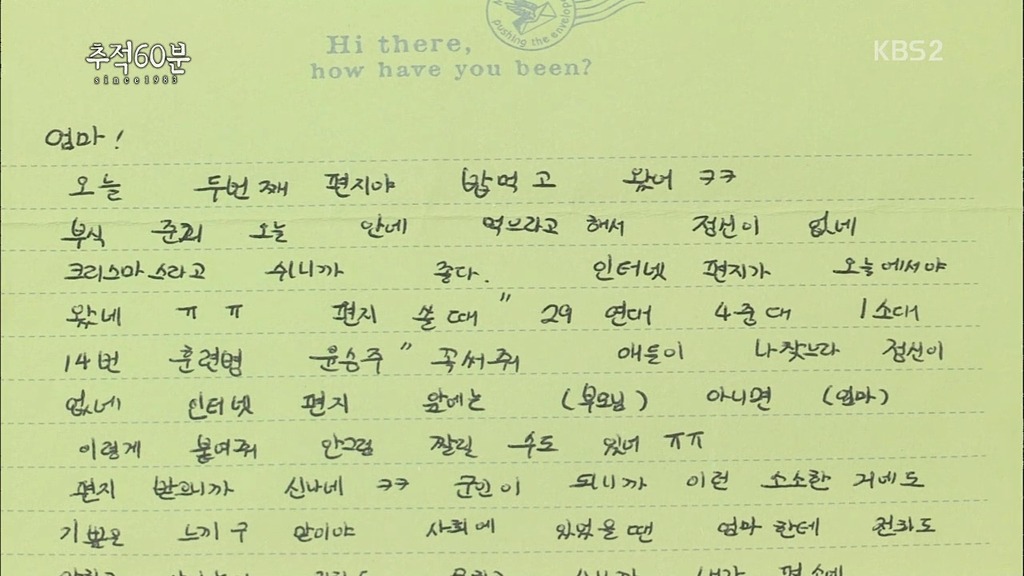 추적60분
since1983
KBS2
pushing the envelope
Hi there,
how have you been?
엄마!
오늘 두번째 편지야 밥먹고 왔네 ㅋㅋ
부식 준괴 오늘 안네 먹으라고 해서 정신이 없네
크리스마스라고 쉬니까 좋다. 인터넷 편지가 오늘에서야
왔네 ㅠㅠ 편지 쓸때 "29 연대 4중대 1소대
14번 훈련병 윤승주" 꼭써줘 애들이 나찾느라 정신이
없네 인터넷 편지 앞에는 (부모님) 아니면 (엄마)
이렇게 붙여줘 안그럼 짤릴 수도 있네 ㅠㅠ
편지 받으니까 신나네 ㅋㅋ 군인이 되니까 이런 소소한 거에도
기쁨은 느끼구 말이야 사회에 있었을땐 엄마한테 전화도